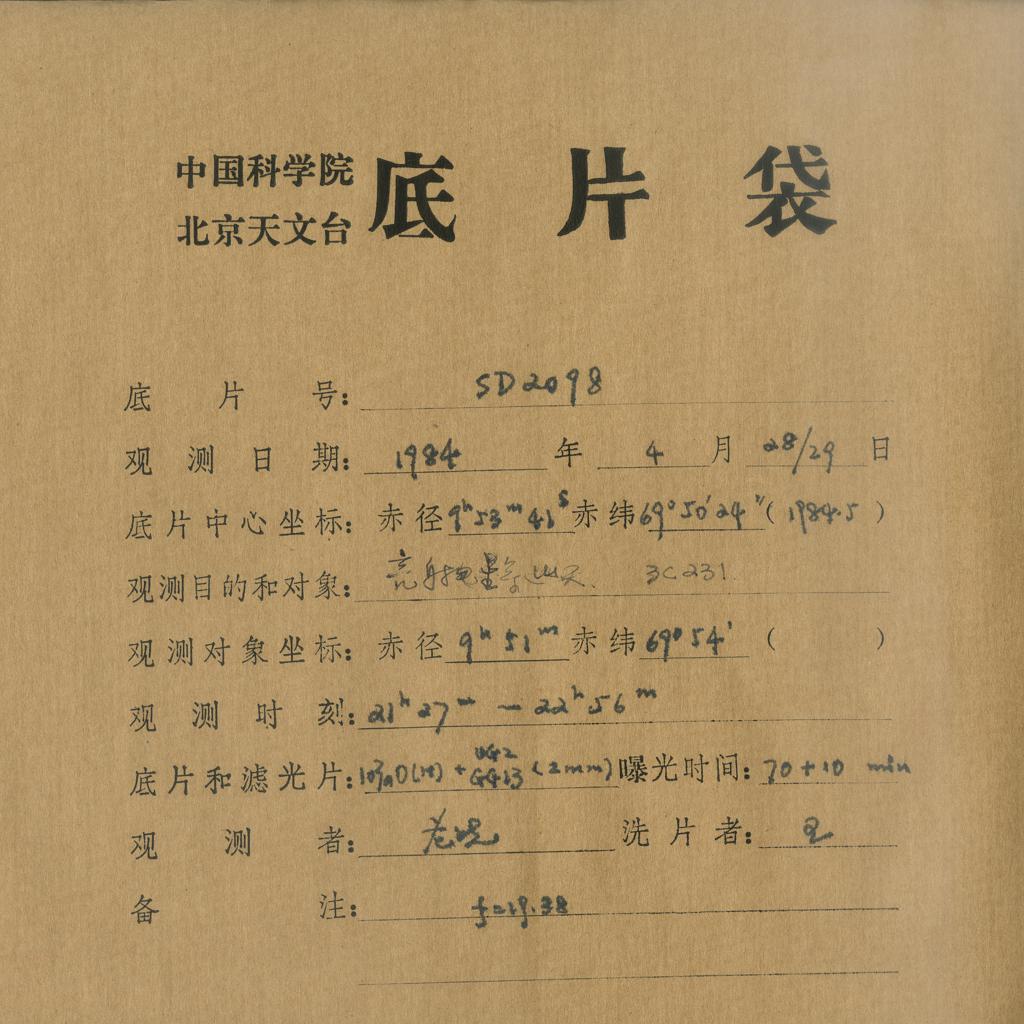 中国科学院
北京天文台
底片袋
底片号: SD2098
观测日期: 1984 年 4 月 28/29 日
底片中心坐标: 赤径 9ʰ53ᵐ41ˢ 赤纬 69°50′24″ (1984.5)
观测目的和对象: 3C231
观测对象坐标: 赤径 9ʰ51ᵐ 赤纬 69°54′ ( )
观测时刻: 21ʰ27ᵐ — 22ʰ56ᵐ
底片和滤光片: + UG2 GG13 (2mm) 曝光时间: 70+10 min
观测者: 洗片者:
备注: f=19.38